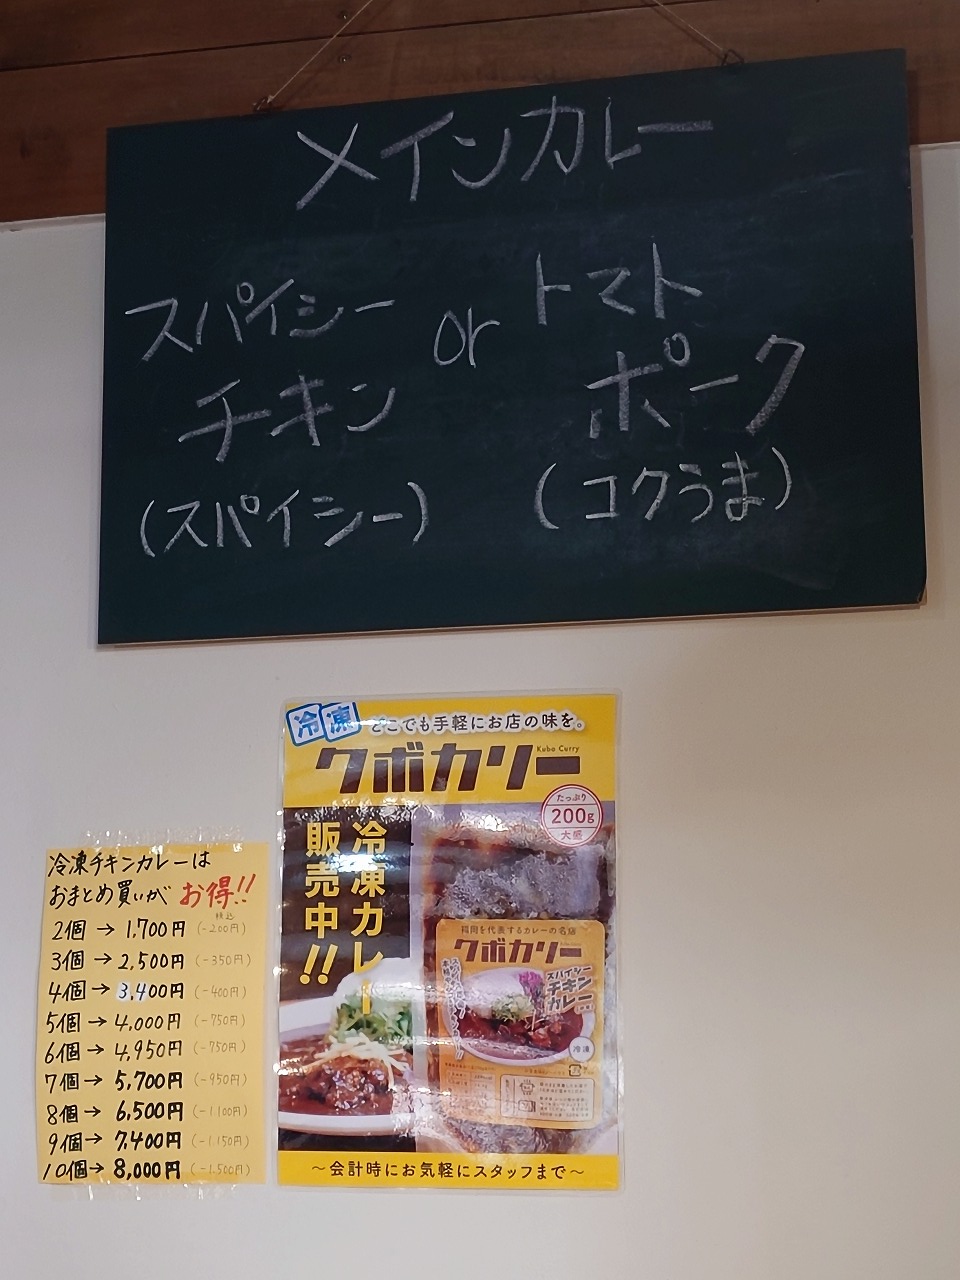 メインカレー
スパイシー
チキン
(スパイシー)
or
トマト
ポーク
(コクうま)
冷凍 どこでも手軽にお店の味を。
クボカリー
Kubo Curry
たっぷり
200g
大盛
冷凍カレー
販売中!!
福岡を代表するカレーの名店
クボカリー
スパイシー
チキン
カレー
冷凍
〜会計時にお気軽にスタッフまで〜
冷凍チキンカレーは
おまとめ買いが お得!!
税込
2個→1,700円(-200円)
3個→2,500円(-350円)
4個→3,400円(-400円)
5個→4,000円(-750円)
6個→4,950円(-750円)
7個→5,700円(-950円)
8個→6,500円(-1.100円)
9個→7,400円(-1.150円)
10個→8,000円(-1.500円)